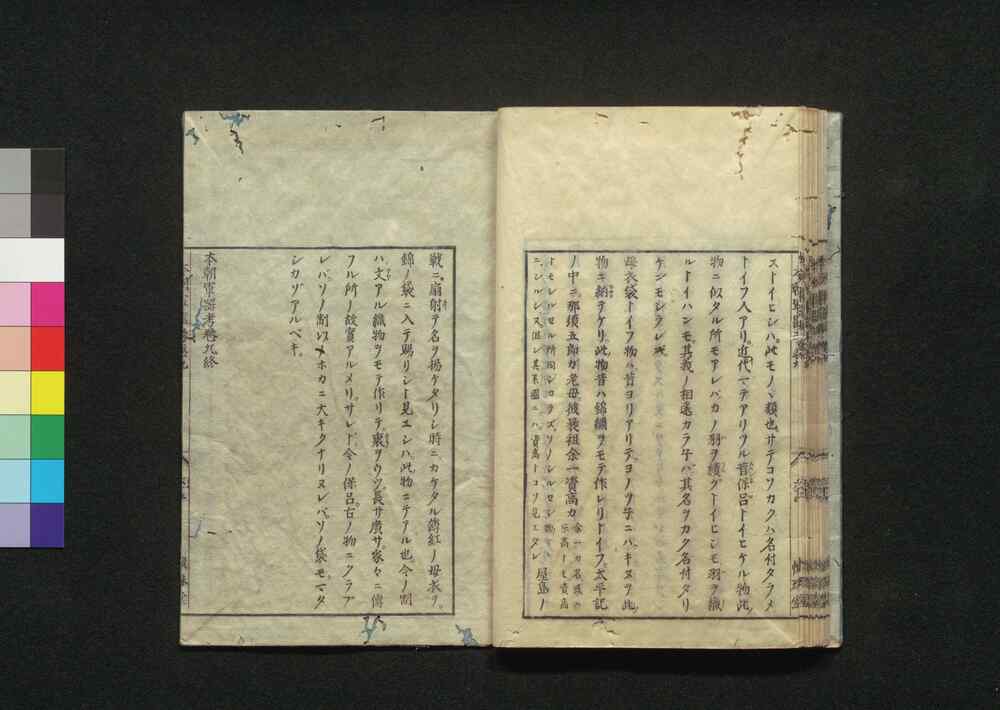 ストイヒシハ此モノヽ類也サテコソカクハ名付タラメ
トイフ人アリ近代マテアリツル盲保呂トイヒケル物此
物ニ似タル所モアレバカノ羽ヲ續グトイヒシモ羽ヲ織
ルトイハンモ其義ノ相遠カラ子バ其名ヲカク名付タリ
ケンモシラレズ
母衣袋トイフ物ハ昔ヨリアリテヨノツ子ニハキヌヲ此
物ニ納テケリ此物昔ハ錦繍ヲモテ作レリトイフ太平記
ノ中ニ那須五郎ガ老母彼装祖余一資高カ
屋島ノ
戰ニ扇射テ名ヲ揚ケタリシ時ニカケタル薄紅ノ母衣ヲ
錦ノ袋ニ入テ賜リシト見エシハ此物ニテアル也今ノ制
ハ文アル織物ヲモテ作リテ裏ヲウツ長サ廣サ家々ニ傳
フル所ノ故實アルメリサレド今ノ保呂古ノ物ニクラブ
レバソノ制以ノホカニ大キクナリヌレバソノ袋モマタ
シカゾアルベキ
本朝軍器考巻九終